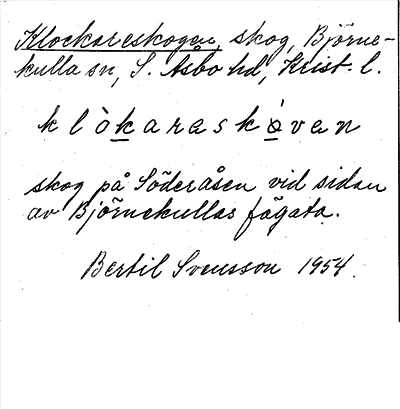 Klockareskogen, skog, Björne-
kulla sn, S. Åsbo hd, Krist. l.
klò̱karaskǿ̱ven
skog på Söderåsen vid sidan
av Björnekullas fägata.
Bertil Svensson 1954.